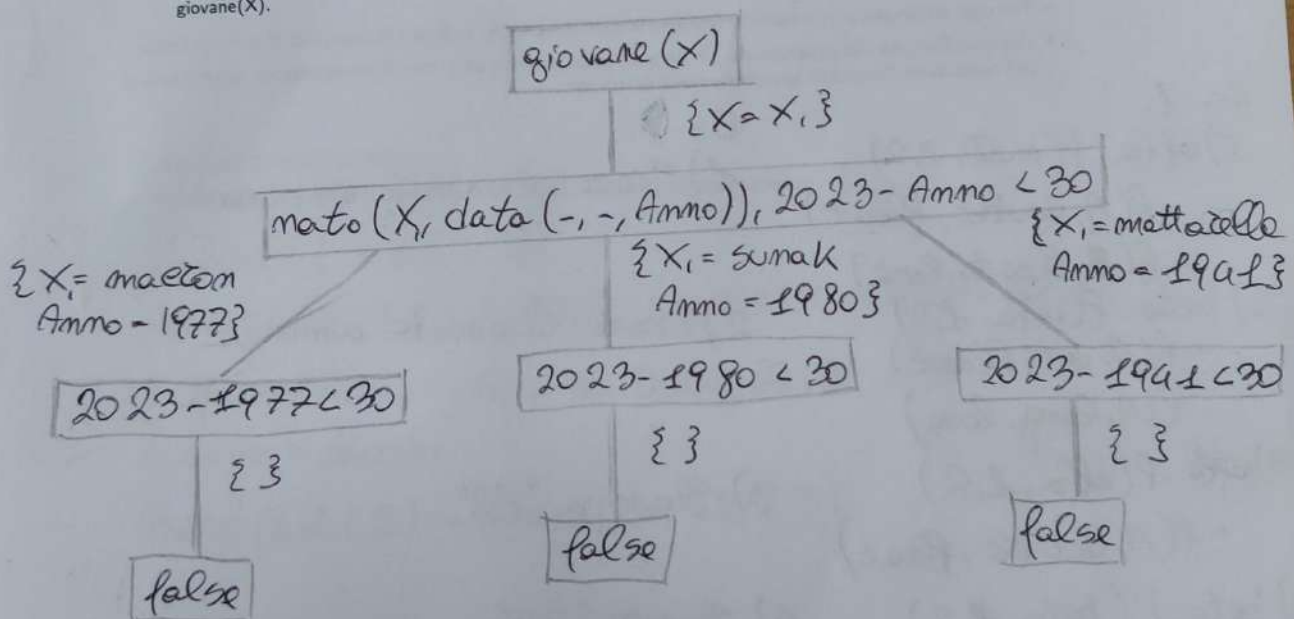 giovane(X).
giovane (X)
{X = X₁}
nato (X₁, data (-, -, Anno)), 2023 - Anno < 30
{X₁ = macron
Anno = 1977}
{X₁ = sunak
Anno = 1980}
{X₁ = mattarella
Anno = 1941}
2023 - 1977 < 30
2023 - 1980 < 30
2023 - 1941 < 30
{ }
{ }
{ }
false
false
false